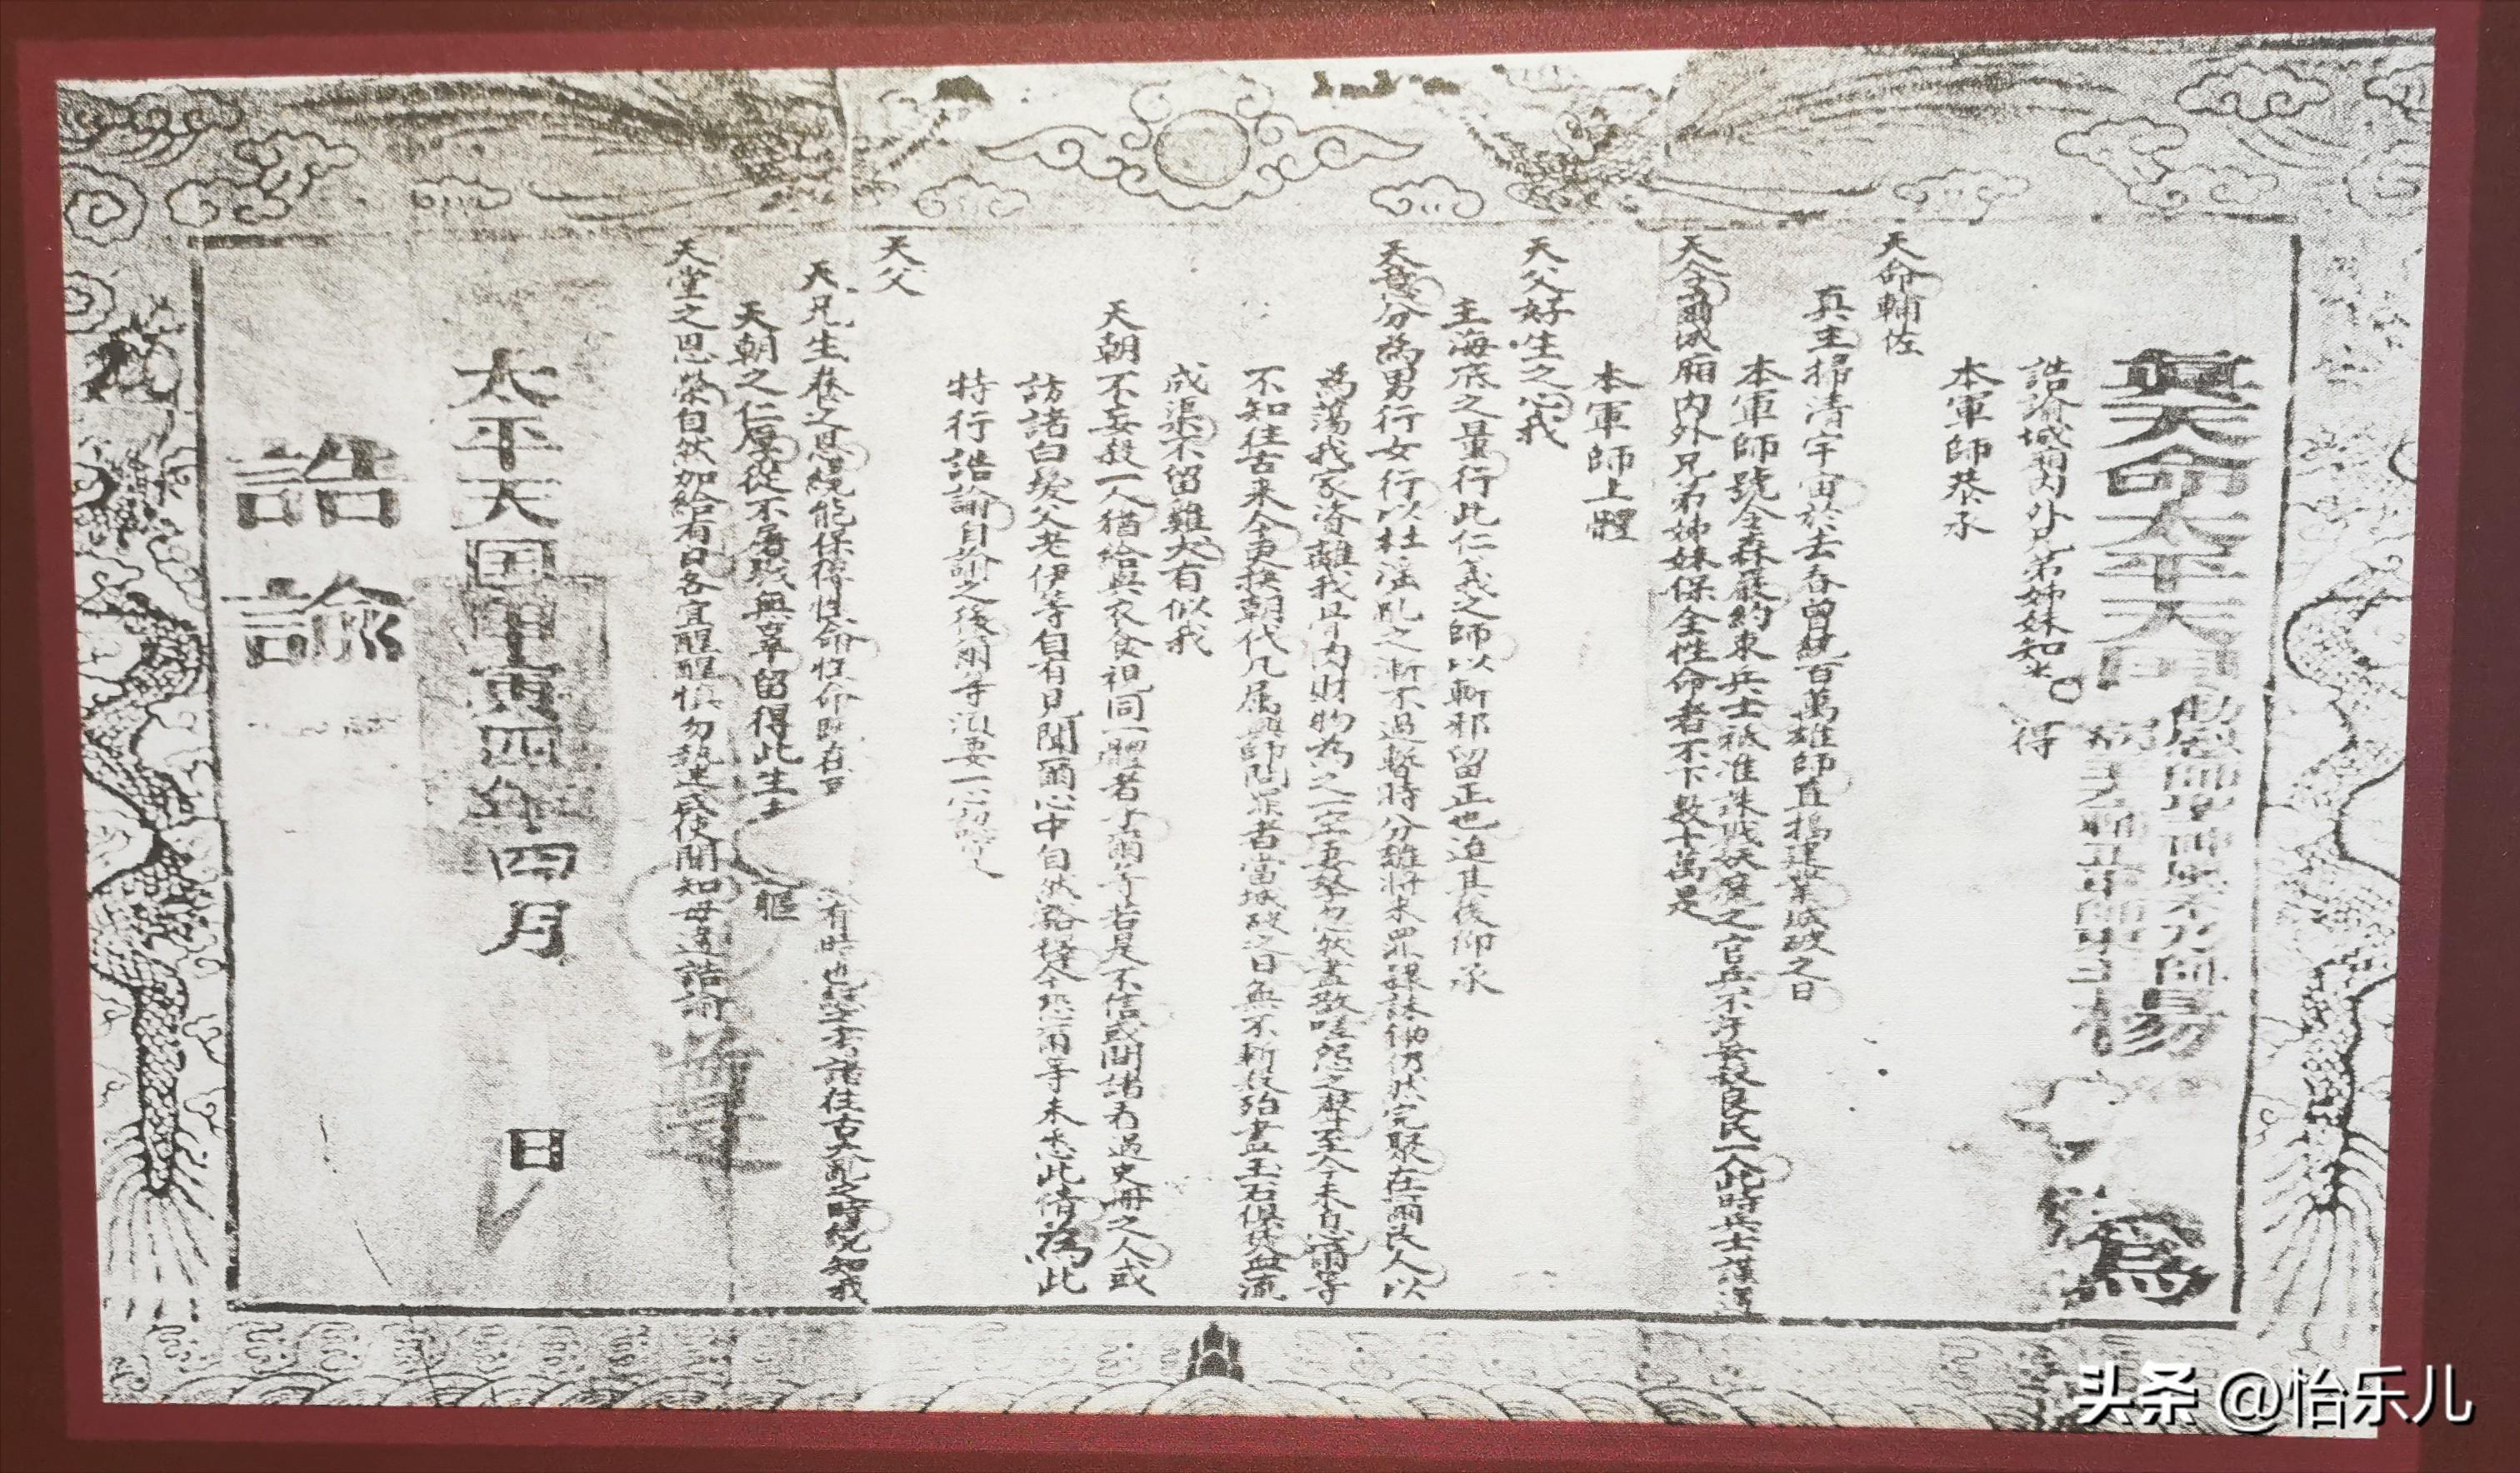 真天命太平天國
勸慰師
禾乃師
贖病主
軍師東王楊
為
誥諭城廂內外兄弟姊妹知悉。得
本軍師恭承
天命輔佐
真主掃清宇宙於去春曾統百萬雄師直搗建業城破之日
本軍師號令森嚴約束兵士衹准誅戮妖魔之官兵不許妄殺良民一人彼時兵士謹遵
天令爾城廂內外兄弟姊妹保全性命者不下數十萬是
本軍師上體
天父好生之心我
主海底之量行此仁義之師以斬邪留正也迨其後仰承
天意分為男行女行以杜淫亂之漸不過暫時分離將來罪隸誅鋤仍然完聚在爾民人以
為蕩我家資離我骨肉財物為之一空妻孥忽然盡散嗟怨之聲至今未息爾等
不知往古來今更換朝代凡屬興師問罪者當城破之日無不斬殺殆盡玉石俱焚血流
成渠不留雞犬有似我
天朝不妄殺一人猶給與衣食視同一體者乎爾等若是不信或問諸看過史冊之人或
訪諸白髮父老伊等自有見聞爾心中自然豁然今恐爾等未悉此情為此
特行誥諭自諭之後爾等須要一心
天父
天兄生養之恩總能保得性命性命既在 有時也 諸往古大亂之時 知我
天朝之仁厚從不屠殺無辜留得此生 軀
天堂之恩榮自然加給有日各宜醒醒慎勿執迷咸使聞知毋違誥諭
太平天国甲寅四年四月 日
誥諭
头条 @怡乐儿